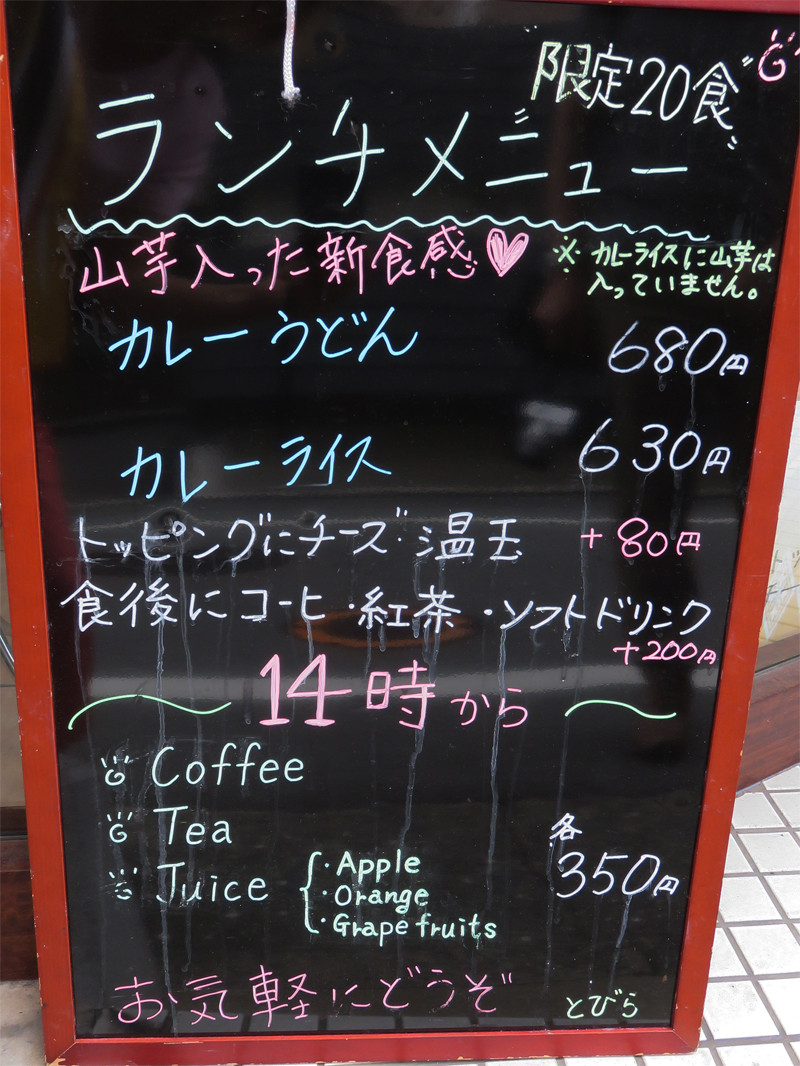 限定20食
ランチメニュー
山芋入った新食感♡
※カレーライスに山芋は
入っていません。
カレーうどん 680円
カレーライス 630円
トッピングにチーズ・温玉 +80円
食後にコーヒ・紅茶・ソフトドリンク
+200円
14時から
Coffee
Tea
Juice
・Apple
・Orange
・Grape fruits
各
350円
お気軽にどうぞ
とびら